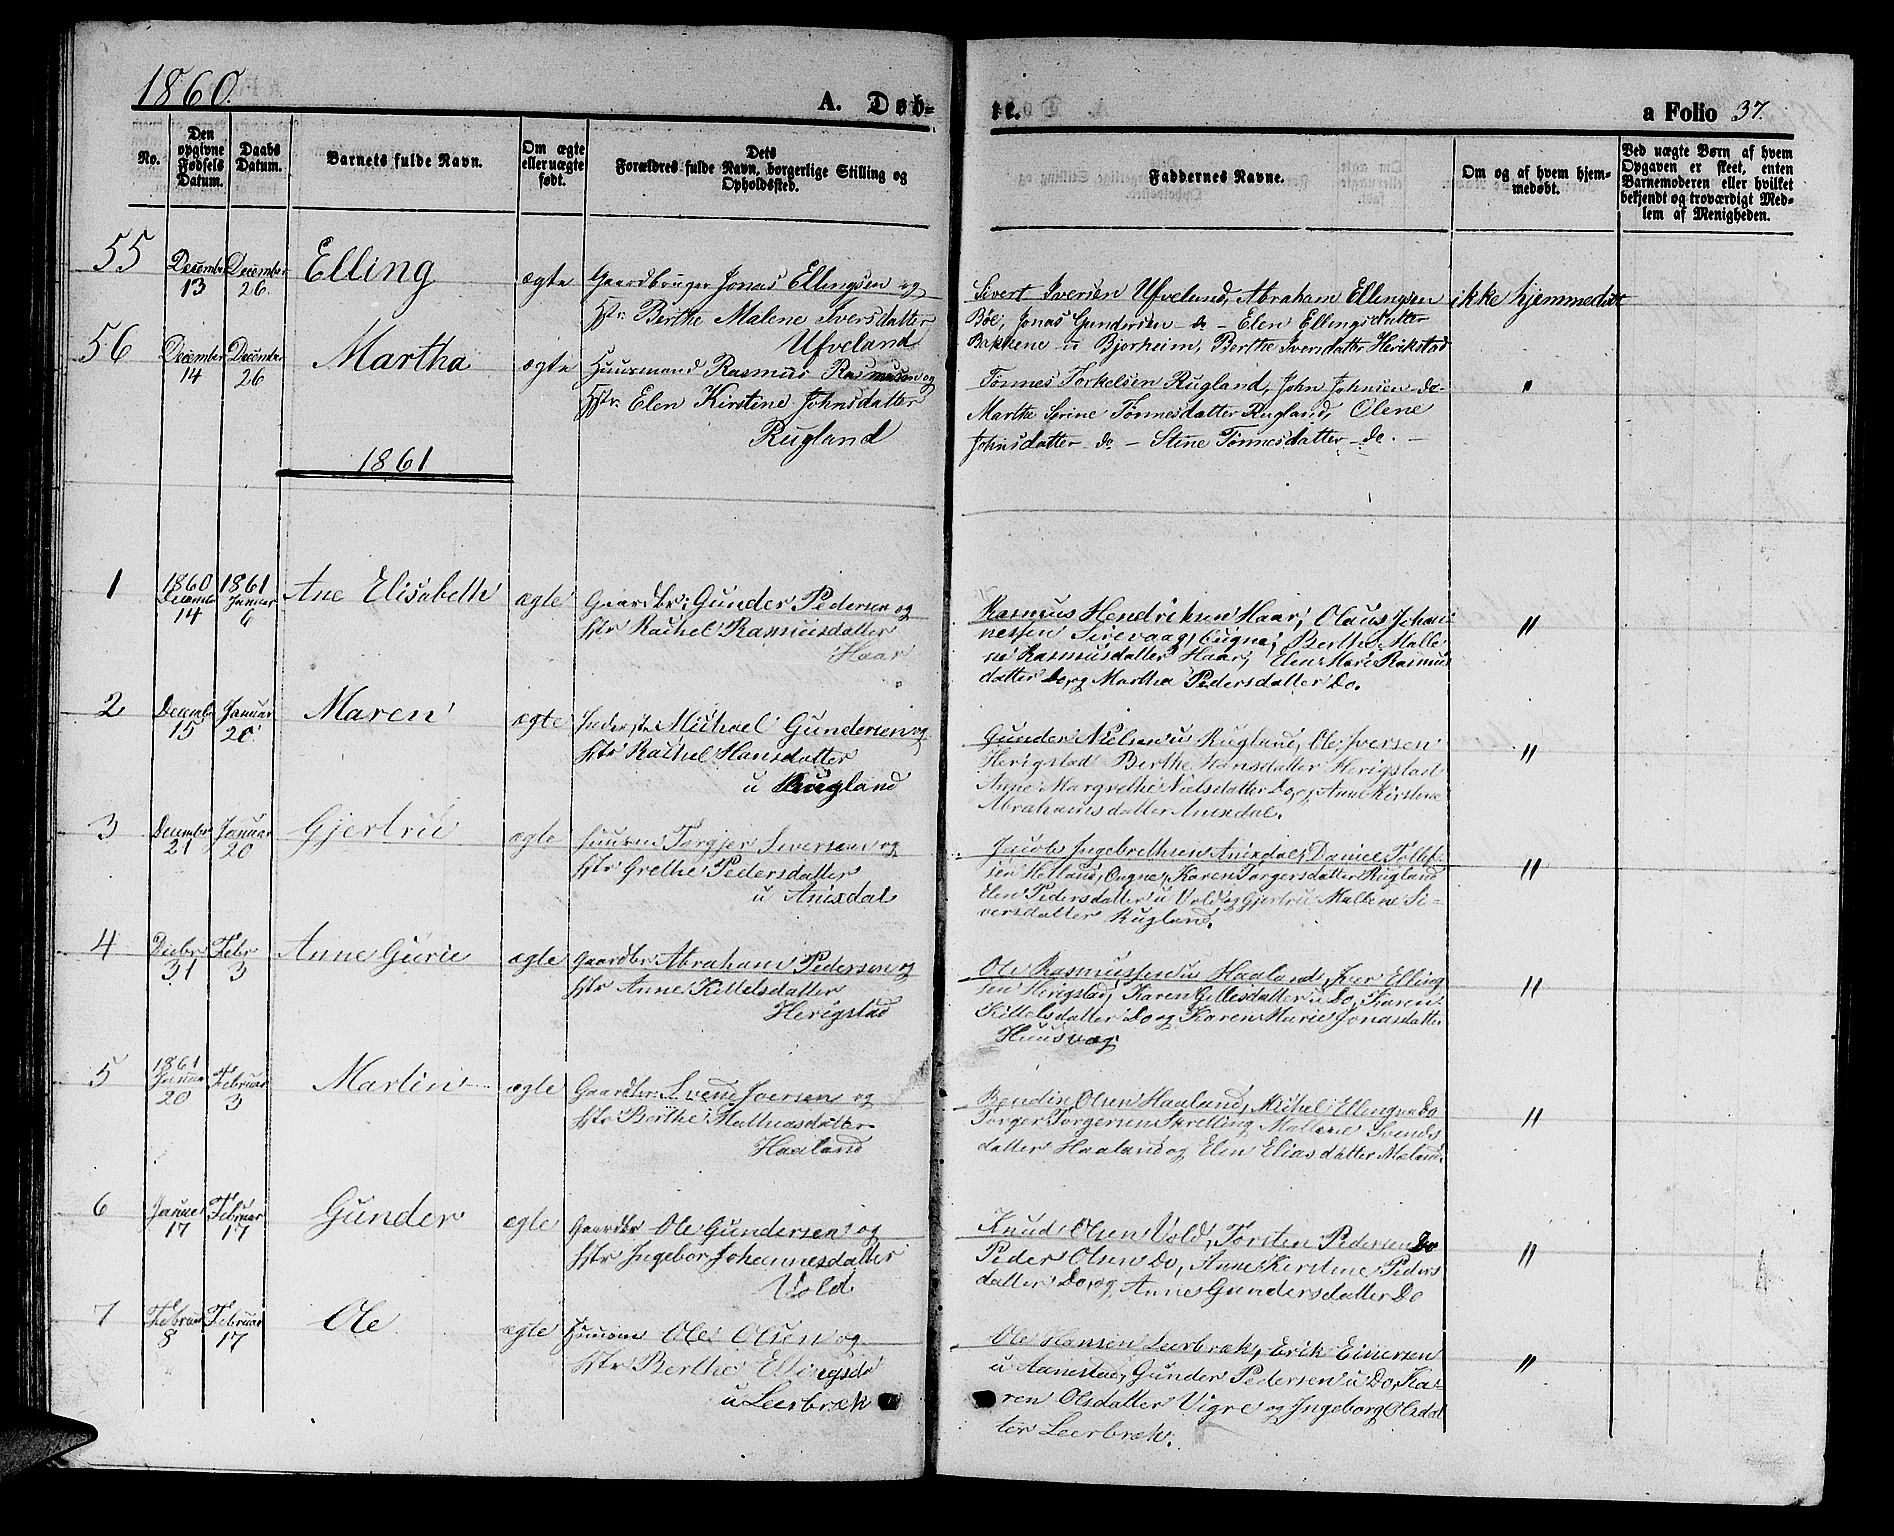 1860.
A. Døb-
te.
a Folio 37.
No.
Den opgivne Fødsels Datum.
Daabs Datum.
Barnets fulde Navn.
Om ægte eller uægte født.
Dets Forældres fulde Navn, borgerlige Stilling og Opholdssted.
Faddernes Navne.
Om og af hvem hjemmedøbt.
Ved uægte Børn af hvem Opgaven er skeet, enten Barnemoderen eller hvilket bekjendt og troværdigt Medlem af Menigheden.
55 December 13 December 26. Elling ægte Gaardbruger Jonas Ellingsen og
Hstr. Berthe Malene Iversdatter
Ufveland
Sivert Iversen Ufveland, Abraham Ellingsen
Böe, Jonas Gundersen - do - Elen Ellingsdatter
Bakkene u Bjorheim, Berthe Iversdatter Herikstad
ikke hjemmedöbt
56 December 14 December 26 Martha ægte Huusmand Rasmus Rasmusen og
Hstr. Elen Kirstine Johnsdatter
Rugland
Tönnes Torkelsen Rugland, John Johnsen do-
Marthe Serine Tönnesdatter Rugland, Olene
Johnsdatter - do - Stine Tönnesdatter - do. -
"
1861
1 1860 December 14 1861 Januar 6 Ane Elisabeth ægte Gaardbr: Gunder Pedersen og
Hstr Rachel Rasmusdatter
Haar
Rasmus Hendriksen Haar, Olaus Johan-
nessen Sirevaag, Ougne, Berthe Malle-
ne Rasmusdatter Haar, Elen Marie Rasmus
datter Do, og Martha Pedersdatter Do.
"
2 Decembr 15 Januar 20 Maren ægte Michael Gundersen og
Hstr Rachel Hansdatter
u Rugland
Gunder Nielsen u Rugland, Ole Iversen
Herigstad Berthe Hansdatter Herigstad
Anne Margrethe Nielsdatter Do, Anne Kirstine
Abrahamsdatter Anixdal.
"
3 Decembr 21 Januar 20 Gjertru ægte Huusm: Torgjer Siversen og
Hstr Grethe Pedersdatter
u Anixdal
Jacob Ingebrethsen Anixdal, Daniel Tollef-
sen Hetland, Ougne, Karen Torgersdatter Rugland
Elen Pedersdatter u Vold og Gjertru Mallene Si-
versdatter Rugland.
"
4 Decbr 31 Febr 3 Anne Gurie ægte Gaardbr Abraham Pedersen og
Hstr Anne Kittelsdatter
Herigstad
Ole Rasmussen u Haaland, Iver Elling
sen Herigstad, Karen Gillesdatter u Do, Karen
Kittelsdatter Do og Karen Marie Jonasdatter
Huusvæg.
"
5 1861 Januar 20 Februar 3 Martin ægte Gaardbr: Svend Iversen og
Hstr Berthe Mathiasdatter
Haaland
Bendix Olsen Haaland, Michel Ellingsen Do
Torger Torgersen Skretting, Mallene Svends
datter Haaland og Elen Eliasdatter Mæland.
"
6 Januar 17 Februar 17 Gunder ægte Gaardbr Ole Gundersen og
Hstr Ingebor Johannesdatter
Vold
Knud Olsen Vold, Torsten Pedersen Do
Peder Olsen Do, Anne Kirstine Peders
datter Do, og Anne Gundersdatter Do
"
7 Februar 8 Februar 17 Ole ægte Huusm Ole Olsen og
Hstr Berthe Ellingsdr
u Leerbræk
Ole Hansen Leerbræk, Erik Einersen
u Aanestad, Gunder Pedersen u Do, Ka-
ren Olsdatter Vigre og Ingeborg Olsdat
ter Leerbræk.
"